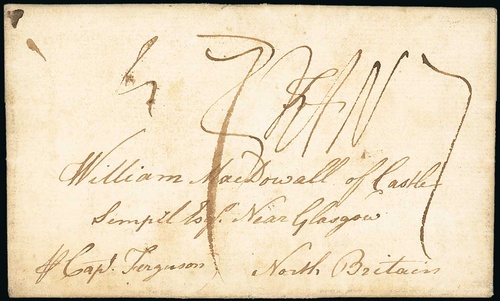 William MacDowall of Castle
Sempil Esqr. Near Glasgow
Capt. Ferguson North Britain